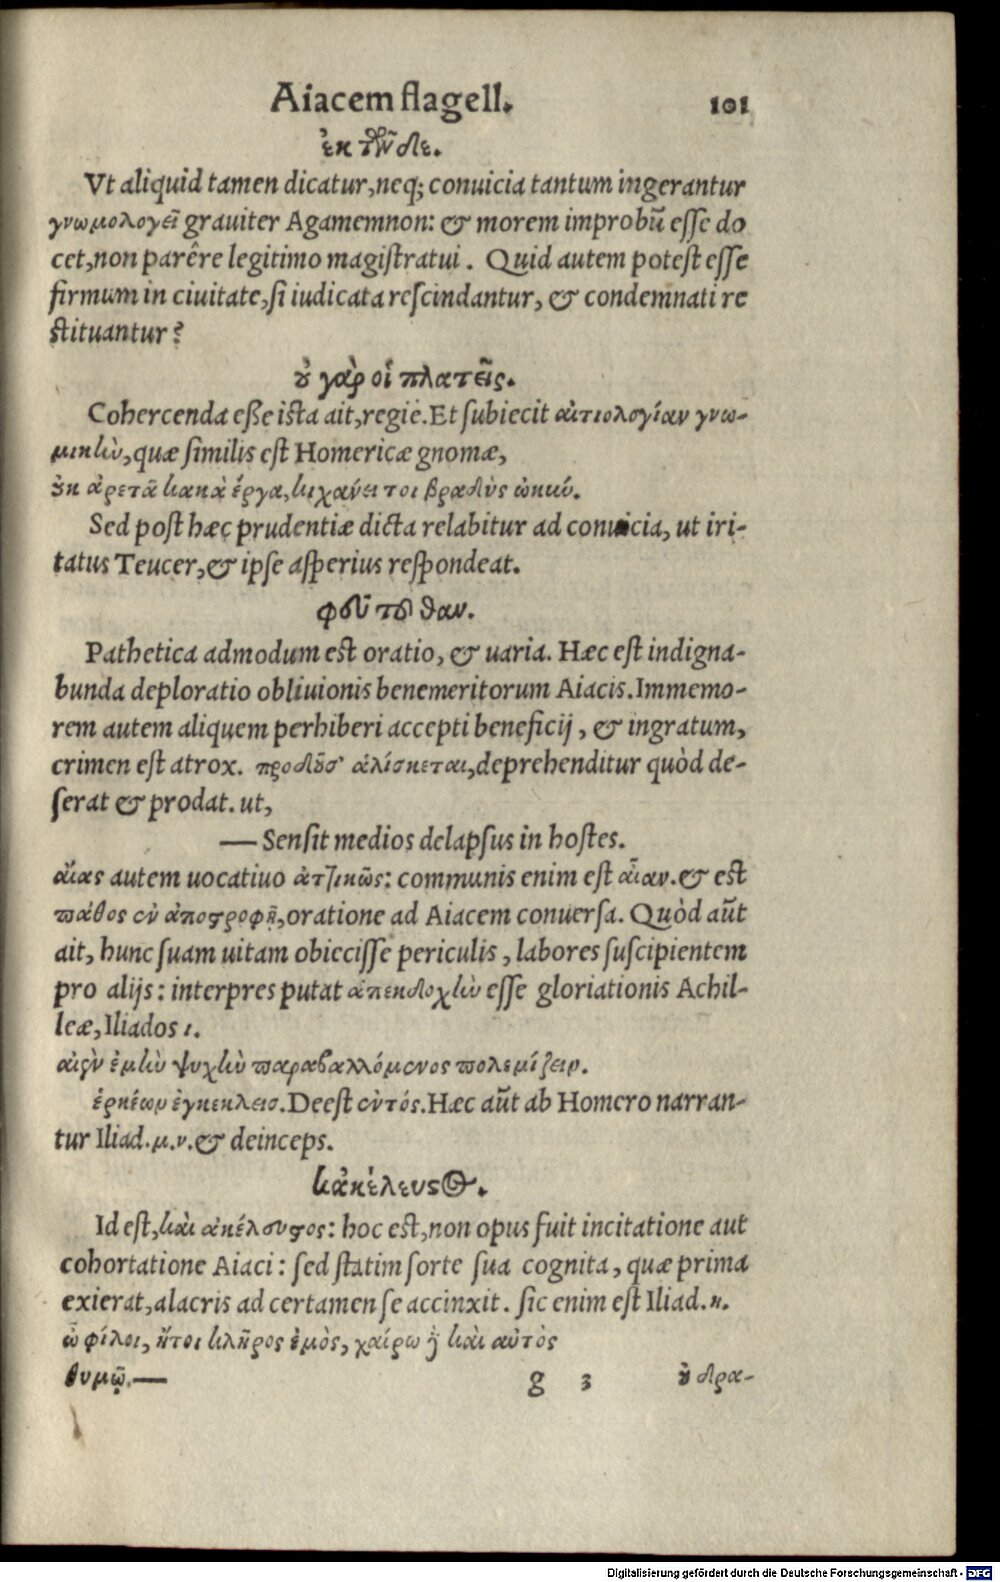 Aiacem flagell. 101
ἐκ τῶνδε.
Vt aliquid tamen dicatur, neq; conuicia tantum ingerantur
γνωμολογεῖ grauiter Agamemnon: & morem improbũ esse do
cet, non parêre legitimo magistratui. Quid autem potest esse
firmum in ciuitate, si iudicata rescindantur, & condemnati re
stituantur?
οὐ γὰρ οἱ πλατεῖς.
Cohercenda eße ista ait, regiè. Et subiecit αἰτιολογίαν γνω-
μικὴν, quæ similis est Homericæ gnomæ,
οὐκ ἀρετᾶ κακὰ ἔργα, κιχάνει τοι βραδὺς ὠκύν.
Sed post hæc prudentiæ dicta relabitur ad conuicia, ut iri-
tatus Teucer, & ipse asperius respondeat.
φεῦ τοῦ θαν.
Pathetica admodum est oratio, & uaria. Hæc est indigna-
bunda deploratio obliuionis benemeritorum Aiacis. Immemo-
rem autem aliquem perhiberi accepti beneficij, & ingratum,
crimen est atrox. προδοῦσ' ἁλίσκεται, deprehenditur quòd de-
serat & prodat. ut,
— Sensit medios delapsus in hostes.
αἴας autem uocatiuo ἀττικῶς: communis enim est αἶαν. & est
πάθος ἐν ἀποστροφῇ, oratione ad Aiacem conuersa. Quòd aũt
ait, hunc suam uitam obiecisse periculis, labores suscipientem
pro alijs: interpres putat ἀπεκδοχὴν esse gloriationis Achil-
leæ, Iliados ι.
αἰὲν ἐμὴν ψυχὴν παραβαλλόμενος πολεμίζειν.
ἑρκέων ἐγκεκλεισ. Deest ἐντός. Hæc aũt ab Homero narran-
tur Iliad. μ. ν. & deinceps.
κἀκέλευστος.
Id est, καὶ ἀκέλευστος: hoc est, non opus fuit incitatione aut
cohortatione Aiaci: sed statim sorte sua cognita, quæ prima
exierat, alacris ad certamen se accinxit. sic enim est Iliad. η.
ὦ φίλοι, ἤτοι κλῆρος ἐμὸς, χαίρω δὲ καὶ αὐτὸς
θυμῷ.—
g 3 οὐ δρα-
Digitalisierung gefördert durch die Deutsche Forschungsgemeinschaft - DFG